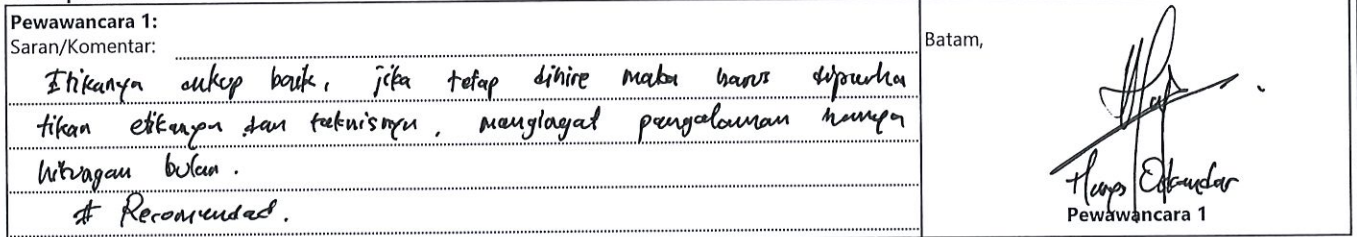 Pewawancara 1:
Saran/Komentar:
Etikanya cukup baik, jika tetap dihire maka harus diperha
tikan etikanya dan teknisnya, mengingat pengalaman hanya
hitungan bulan.
# Recomended.
Batam,
Pewawancara 1